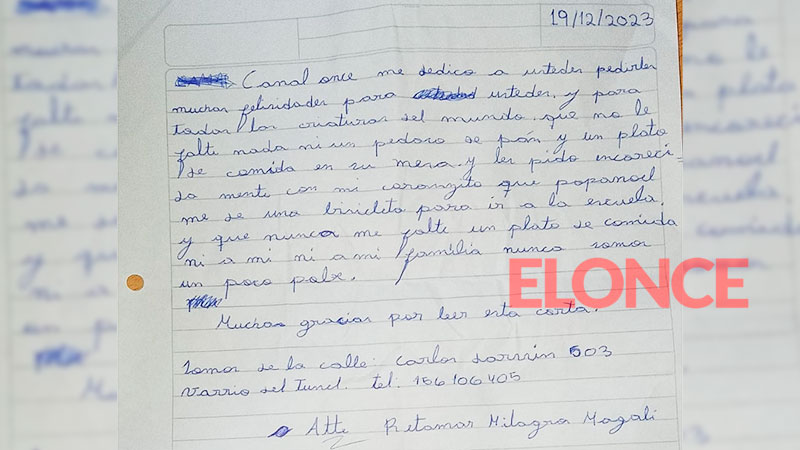 19/12/2023
Canal once me dedico a ustedes pedirles
muchas felisidades para ustedes, y para
todas las criaturas del mundo. que no le
falte nada ni un pedaso de pan y un plato
de comida en su mesa. y les pido encareci-
da mente con mi coranzito que papanoel
me de una bicicleta para ir a la escuela.
y que nunca me falte un plato de comida
ni a mi ni a mi família nunca somos
un poco pobre.
ELONCE
Muchas gracias por leer esta carta.
Somos de la calle: Carlos 503
varrio del tunel. tel: 156106405
Atte Retamar Milagra Magali